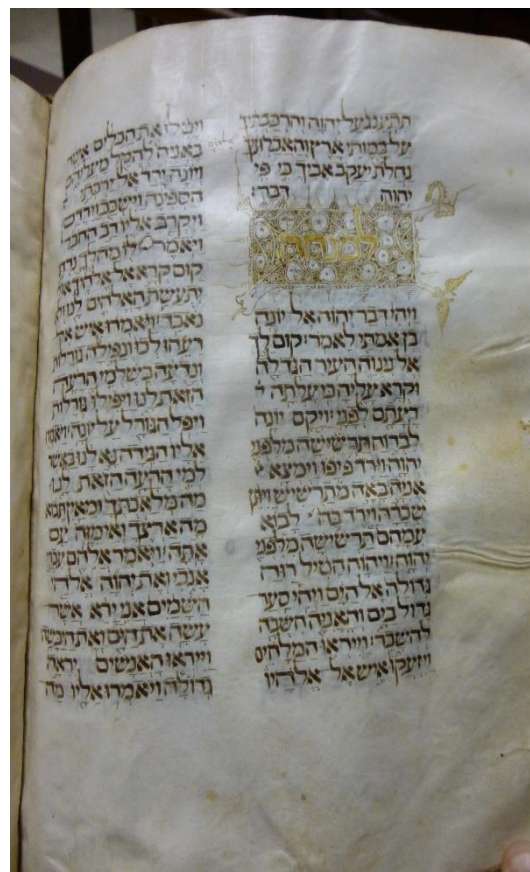 תתענג על יהוה והרכבתיך
על במותי ארץ והאכלתיך
נחלת יעקב אביך כי פי
יהוה דבר׃
למנחה
ויהי דבר יהוה אל יונה
בן אמתי לאמר קום לך
אל נינוה העיר הגדלה
וקרא עליה כי עלתה
רעתם לפני ויקם יונה
לברוח תרשישה מלפני
יהוה וירד יפו וימצא
אניה באה תרשיש ויתן
שכרה וירד בה לבא
עמהם תרשישה מלפני
יהוה ויהוה הטיל רוח
גדולה אל הים ויהי סער
גדול בים והאניה חשבה
להשבר וייראו המלחים
ויזעקו איש אל אלהיו
ויטלו את הכלים אשר
באניה להקל מעליהם
ויונה ירד אל ירכתי
הספינה וישכב וירדם
ויקרב אליו רב החבל
ויאמר לו מה לך נרדם
קום קרא אל אלהיך
יתעשת האלהים לנו ולא
נאבד ויאמרו איש אל
רעהו לכו ונפילה גורלות
ונדעה בשלמי הרעה
הזאת לנו ויפלו גורלות
ויפל הגורל על יונה ויאמרו
אליו הגידה נא לנו באשר
למי הרעה הזאת לנו
מה מלאכתך ומאין תבא
מה ארצך ואי מזה עם
אתה ויאמר אלהם עברי
אנכי ואת יהוה אלהי
השמים אני ירא אשר
עשה את הים ואת היבשה
וייראו האנשים יראה
גדולה ויאמרו אליו מה